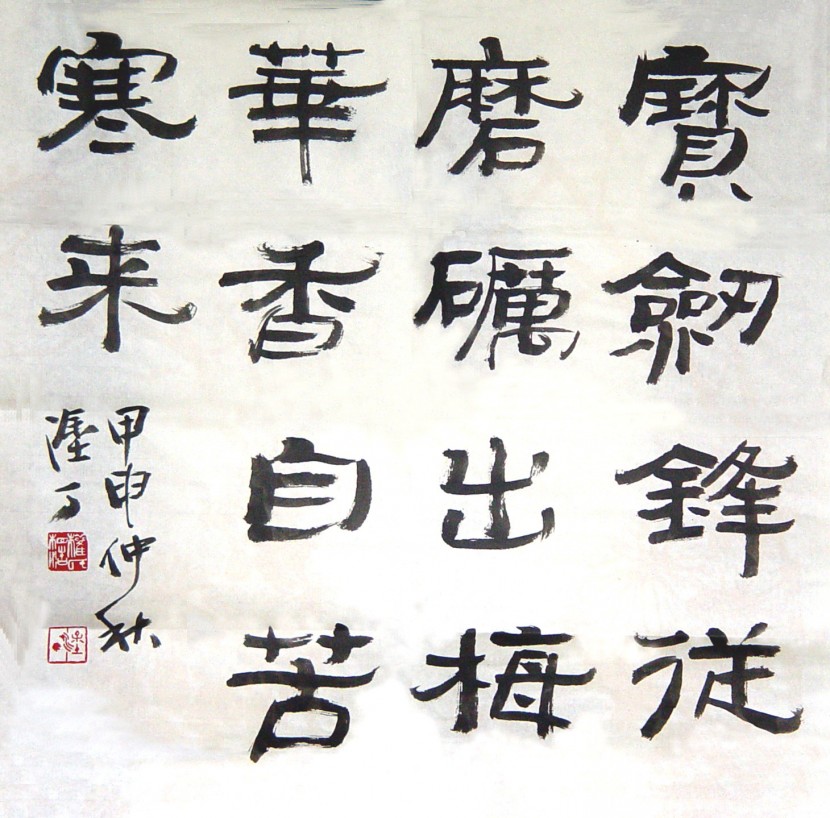 寶劔鋒從
磨礪出梅
華香自苦
寒来
甲申仲秋